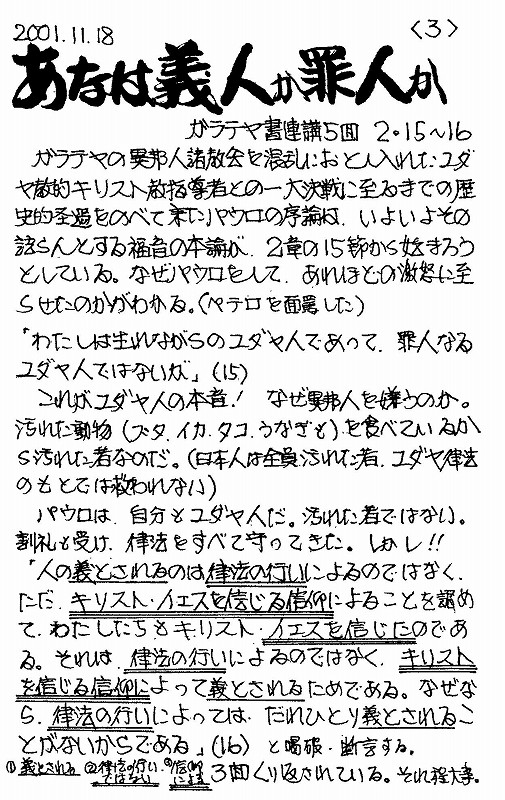 2001.11.18 〈3〉
あなたは義人か罪人か
ガラテヤ書連講5回 2・15~16
ガラテヤの異邦人諸教会を混乱におとし入れたユダ
ヤ教的キリスト教指導者との一大決戦に至るまでの歴
史的経過をのべて来たパウロの序論は、いよいよその
語らんとする福音の本論が、2章の15節から始まろう
としている。なぜパウロをして、あれほどの激怒に至
らせたのかがわかる。(ペテロを面罵した)
「わたしは生れながらのユダヤ人であって、罪人なる
ユダヤ人ではないが」(15)
これがユダヤ人の本音! なぜ異邦人を嫌うのか。
汚れた動物(ブタ、イカ、タコ、うなぎも)を食べているか
ら汚れた者なのだ。(日本人は全員汚れた者、ユダヤ律法
のもとでは救われない)
パウロは、自分もユダヤ人だ。汚れた者ではない。
割礼も受け、律法をすべて守ってきた。しかし!!
「人の義とされるのは律法の行いによるのではなく、
ただ、キリスト・イエスを信じる信仰によることを認め
て、わたしたちもキリスト・イエスを信じたのであ
る。それは、律法の行いによるのではなく、キリスト
を信じる信仰によって義とされるためである。なぜな
ら、律法の行いによっては、だれひとり義とされるこ
とがないからである」(16) と喝破・断言する。
①義とされる ②律法の行いではない ③信仰による 3回くり返されている。それ程大事。